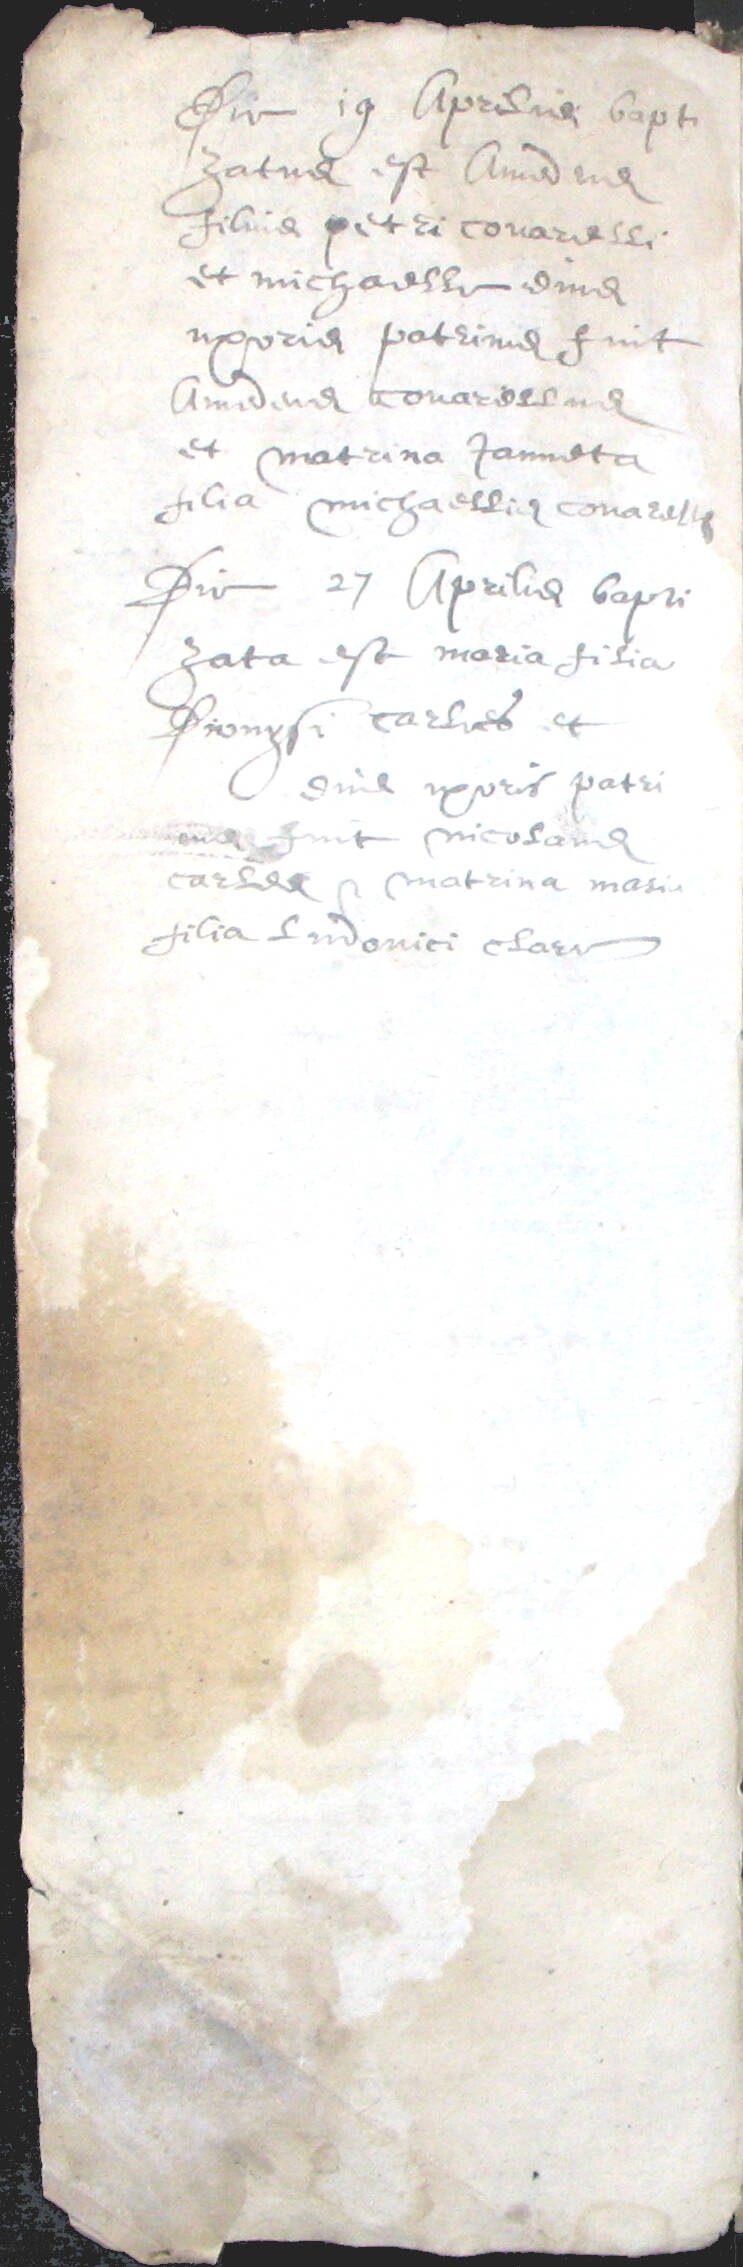 Die 19 Aprilis bapti
zatus est Amedeus
filius petri couarelli
et michaelle eius
uxoris patrinus fuit
Amedeus couarellus
et matrina Janneta
filia michaellis couarelli
Die 27 Aprilis bapti
zata est maria filia
Dionysi carles et
eius uxoris patri
nus fuit nicolaus
carles et matrina maria
filia Ludouici clare